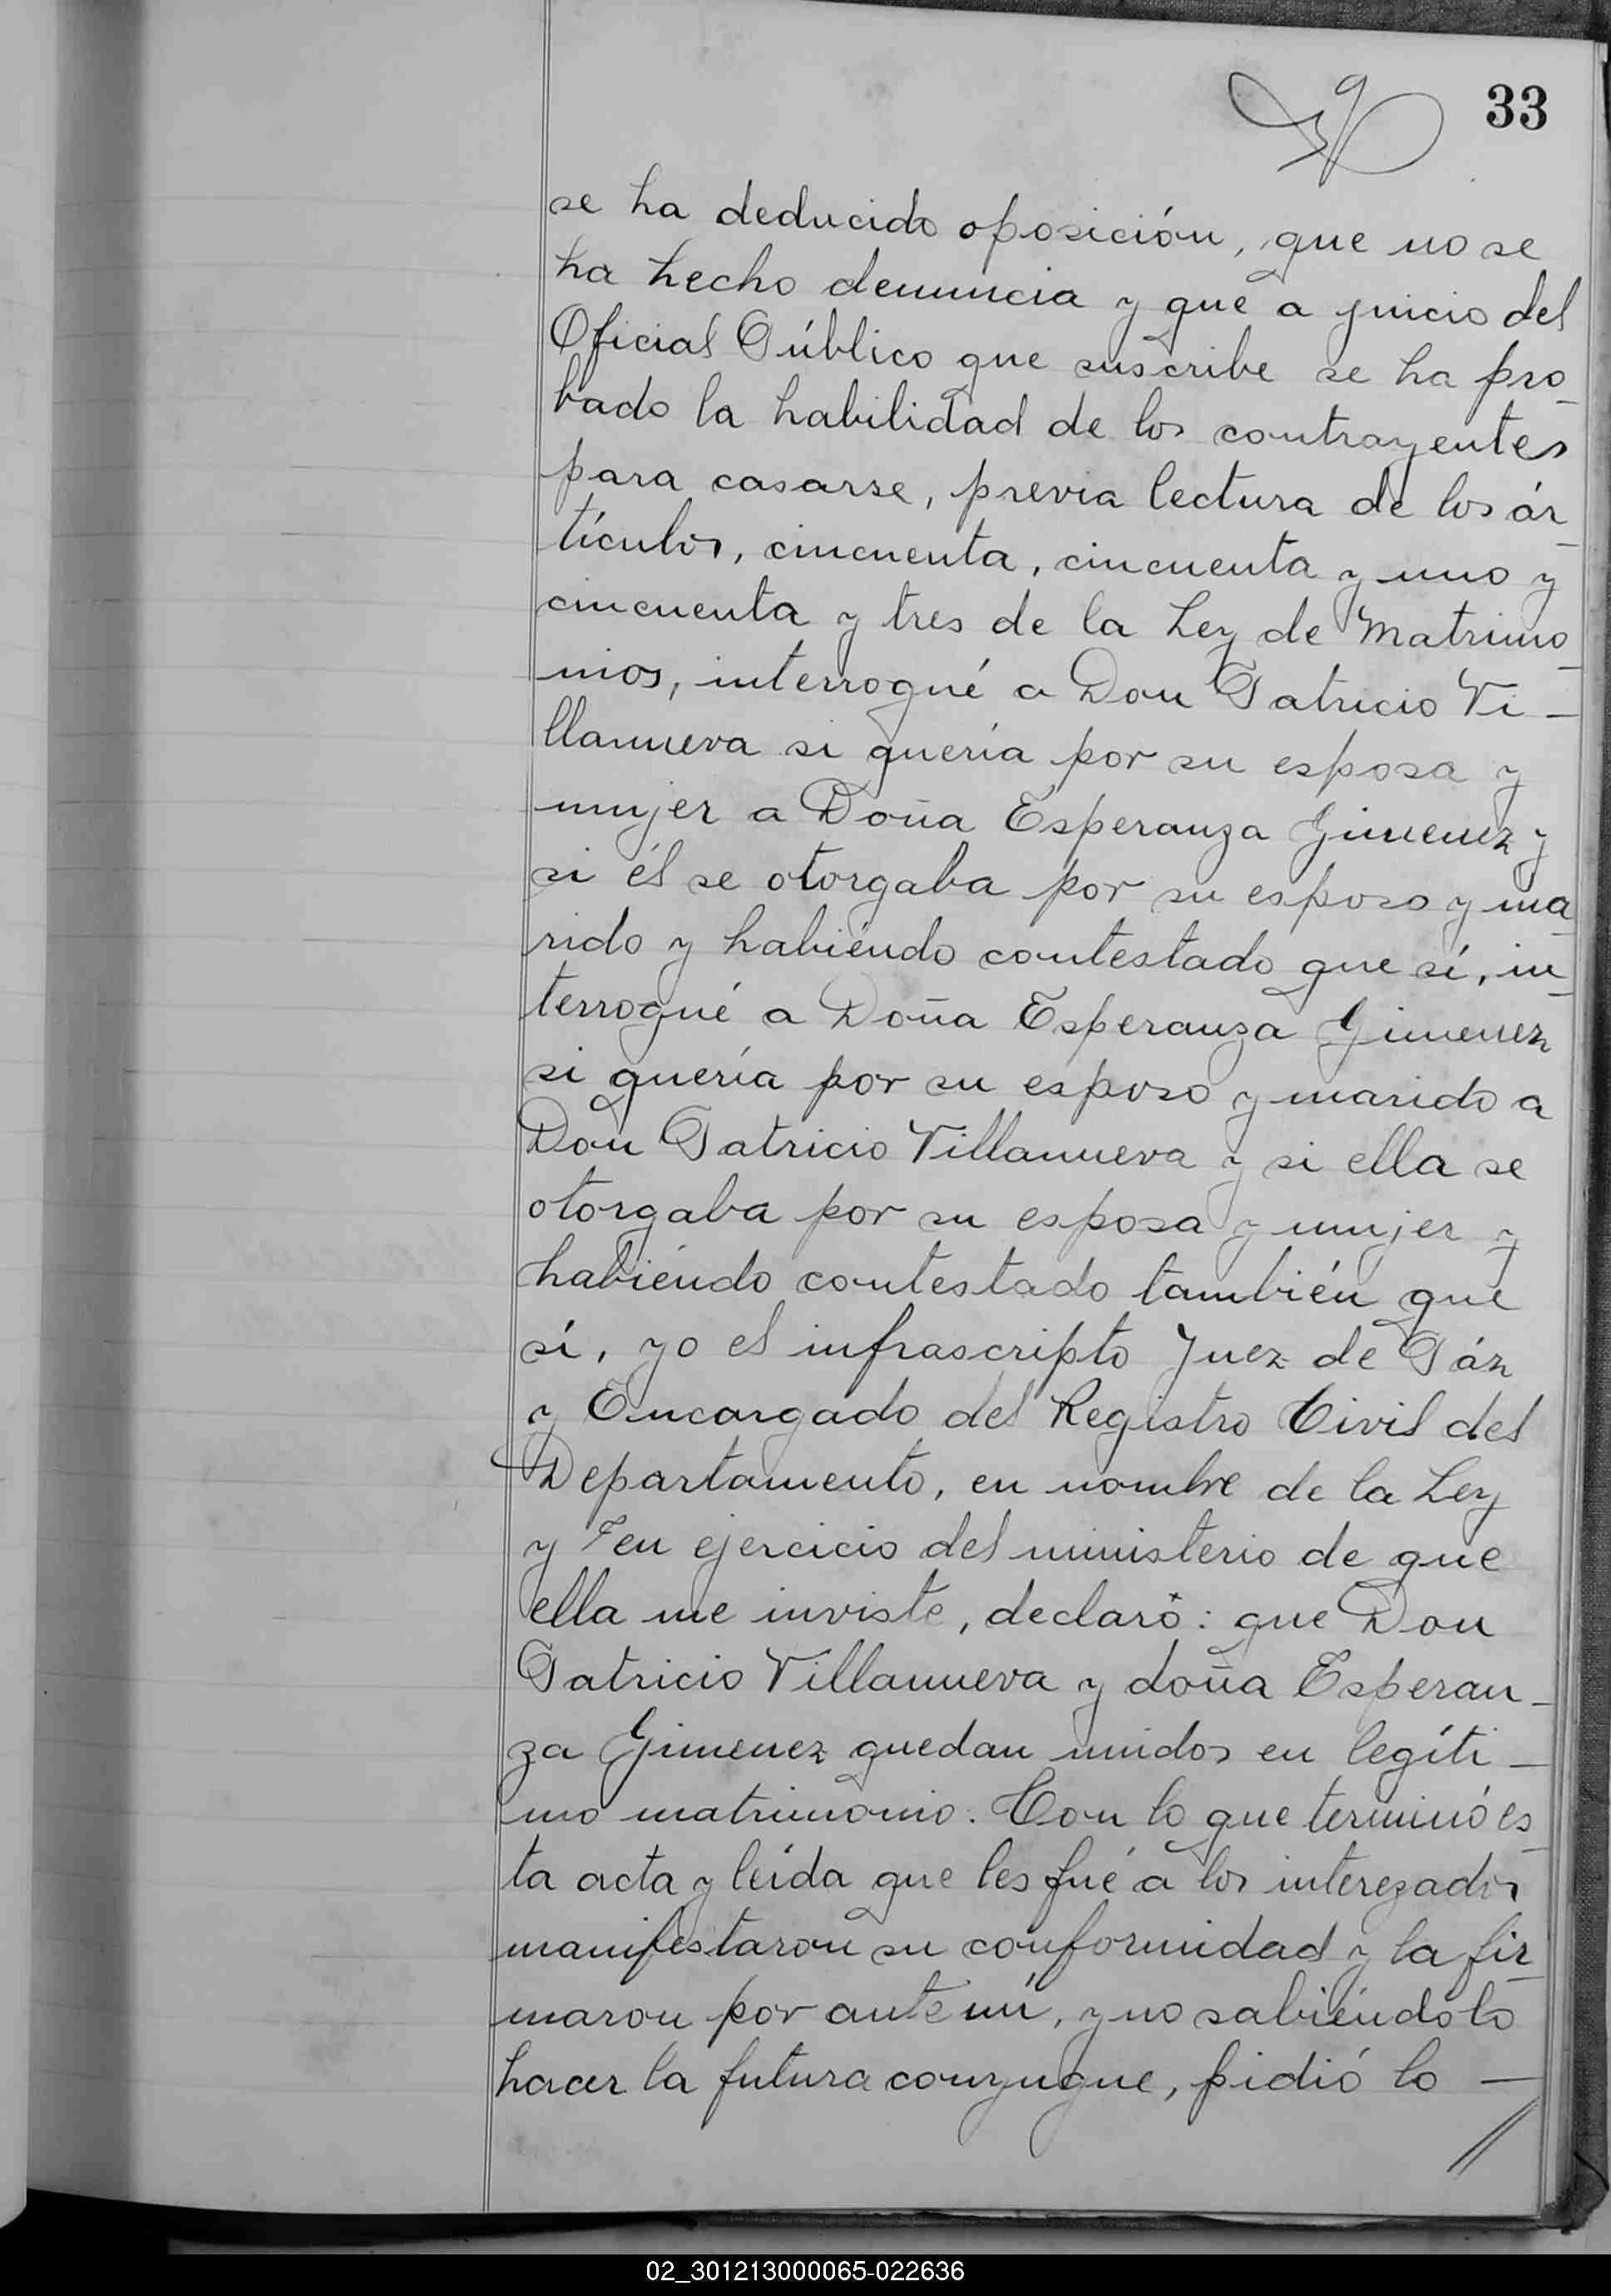 33
se ha deducido oposición, que no se
ha hecho denuncia y que a juicio del
Oficial Público que suscribe se ha pro_
bado la habilidad de los contrayentes
para casarse, previa lectura de los ár_
tículos, cincuenta, cincuenta y uno y
cincuenta y tres de la Ley de Matrimo_
nios, interrogué a Don Patricio Vi_
llanueva si quería por su esposa y
mujer a Doña Esperanza Gimenez y
si él se otorgaba por su esposo y ma_
rido y habiéndo contestado que sí, in_
terrogué a Doña Esperanza Gimenez
si quería por su esposo y marido a
Don Patricio Villanueva y si ella se
otorgaba por su esposa y mujer y
habiéndo contestado también que
sí, yo el infrascripto Juez de Páz
y Encargado del Registro Civil del
Departamento, en nombre de la Ley
y en ejercicio del ministerio de que
ella me inviste, declaró: que Don
Patricio Villanueva y doña Esperan_
za Gimenez quedan unidos en legíti_
mo matrimonio. Con lo que terminó es_
ta acta y leída que les fué a los interezados
manifestaron su conformidad y la fir_
maron por ante mí, y no sabiéndolo
hacer la futura conyugue, pidió lo —
02_301213000065-022636